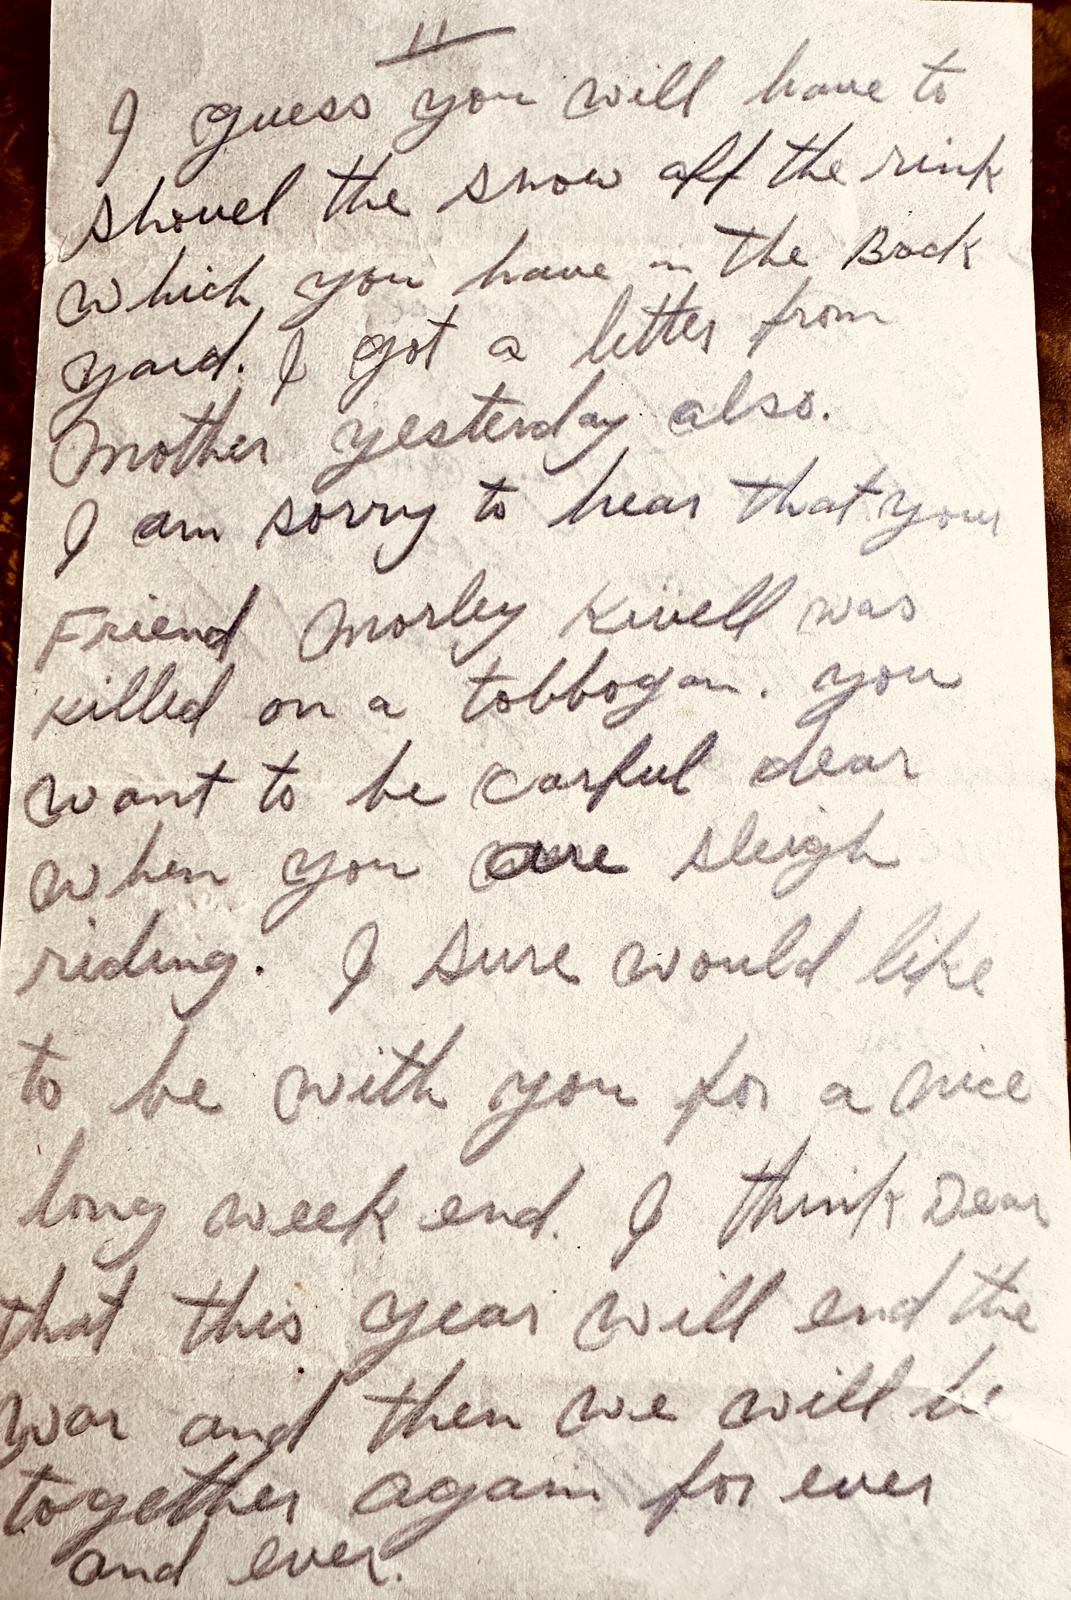 11
I guess you will have to
shovel the snow off the rink
which you have in the Back
yard. I got a letter from
Mother yesterday also.
I am sorry to hear that your
Friend Morley Kivell was
killed on a tobbogan. you
want to be carful dear
when you are sleigh
riding. I sure would like
to be with you for a nice
long week end. I think Dear
that this year will end the
war and then we will be
together again for ever
and ever.